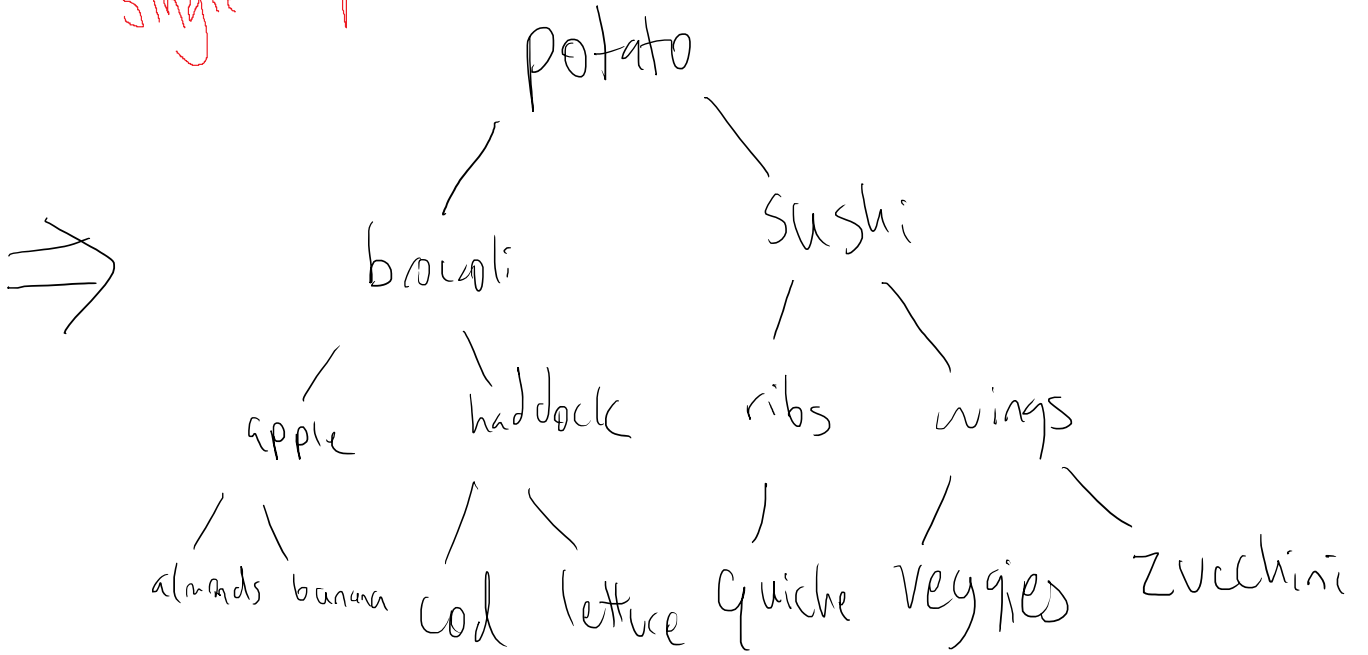 single
potato
sushi
brocoli
apple haddock ribs wings
almonds banana cod lettuce quiche veggies zucchini